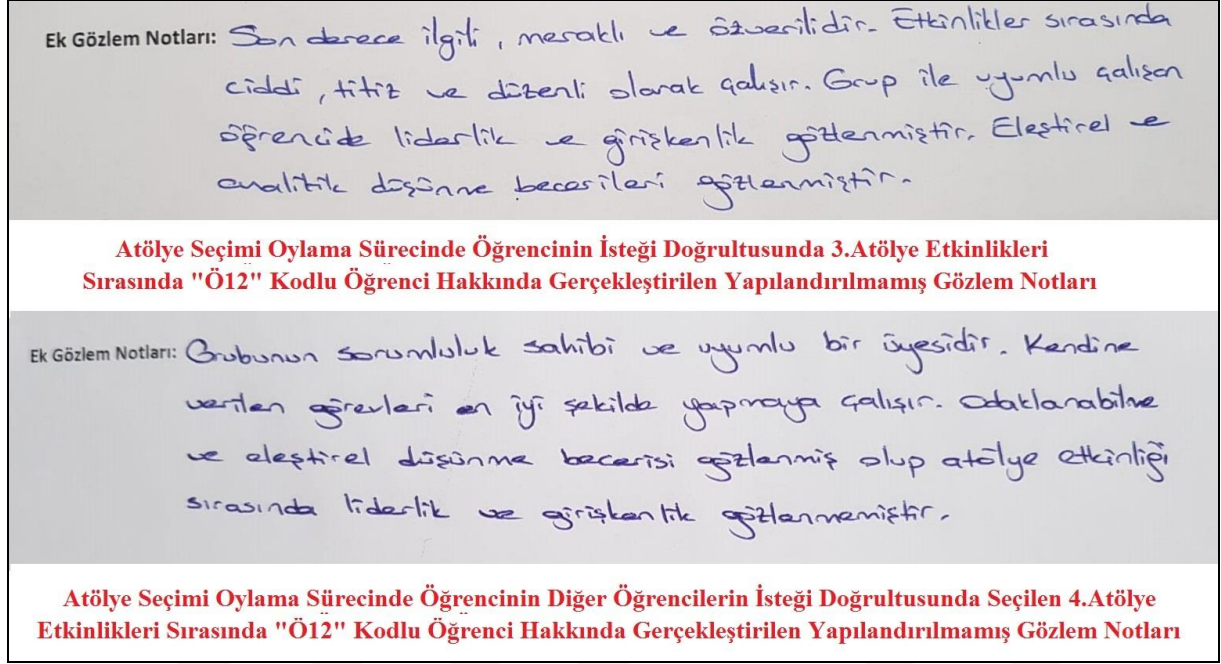 Ek Gözlem Notları: Son derece ilgili, meraklı ve özverilidir. Etkinlikler sırasında
ciddi, titiz ve düzenli olarak çalışır. Grup ile uyumlu çalışan
öğrencide liderlik ve girişkenlik gözlenmiştir. Eleştirel ve
analitik düşünme becerileri gözlenmiştir.
Atölye Seçimi Oylama Sürecinde Öğrencinin İsteği Doğrultusunda 3.Atölye Etkinlikleri
Sırasında "Ö12" Kodlu Öğrenci Hakkında Gerçekleştirilen Yapılandırılmamış Gözlem Notları
Ek Gözlem Notları: Grubunun sorumluluk sahibi ve uyumlu bir üyesidir. Kendine
verilen görevleri en iyi şekilde yapmaya çalışır. Odaklanabilme
ve eleştirel düşünme becerisi gözlenmiş olup atölye etkinliği
sırasında liderlik ve girişkenlik gözlenmemiştir.
Atölye Seçimi Oylama Sürecinde Öğrencinin Diğer Öğrencilerin İsteği Doğrultusunda Seçilen 4.Atölye
Etkinlikleri Sırasında "Ö12" Kodlu Öğrenci Hakkında Gerçekleştirilen Yapılandırılmamış Gözlem Notları